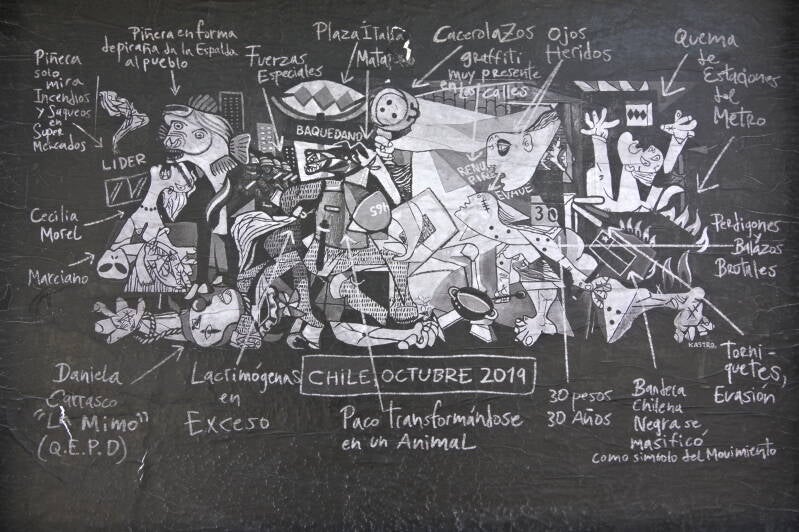 Piñera
solo
mira
Incendios
y Saqueos
en
Supre
Mercados
Piñera en forma
de piraña da la Espalda
al pueblo
Fuerzas
Especiales
Plaza Italia
Matapaco
Cacerolazos
graffiti
muy presente
en las calles
Ojos
Heridos
Quema
de
Estaciones
del
Metro
LIDER
BAQUEDANO
Cecilia
Morel
Marciano
RENUNCIA
PIÑERA
EVADE
30
Perdigones
Balazos
Brutales
KASTRO.
CHILE, OCTUBRE 2019
Daniela
Carrasco
"La Mimo"
(Q.E.P.D)
Lacrimógenas
en
Exceso
Paco Transformándose
en un Animal
30 pesos
30 Años
Bandera
Chilena
Negra se
masificó
como símbolo del Movimiento
Torni-
quetes,
Evasión